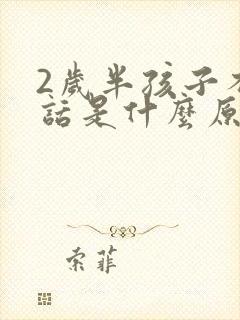 2歲半孩子不
話是什麼原
索菲